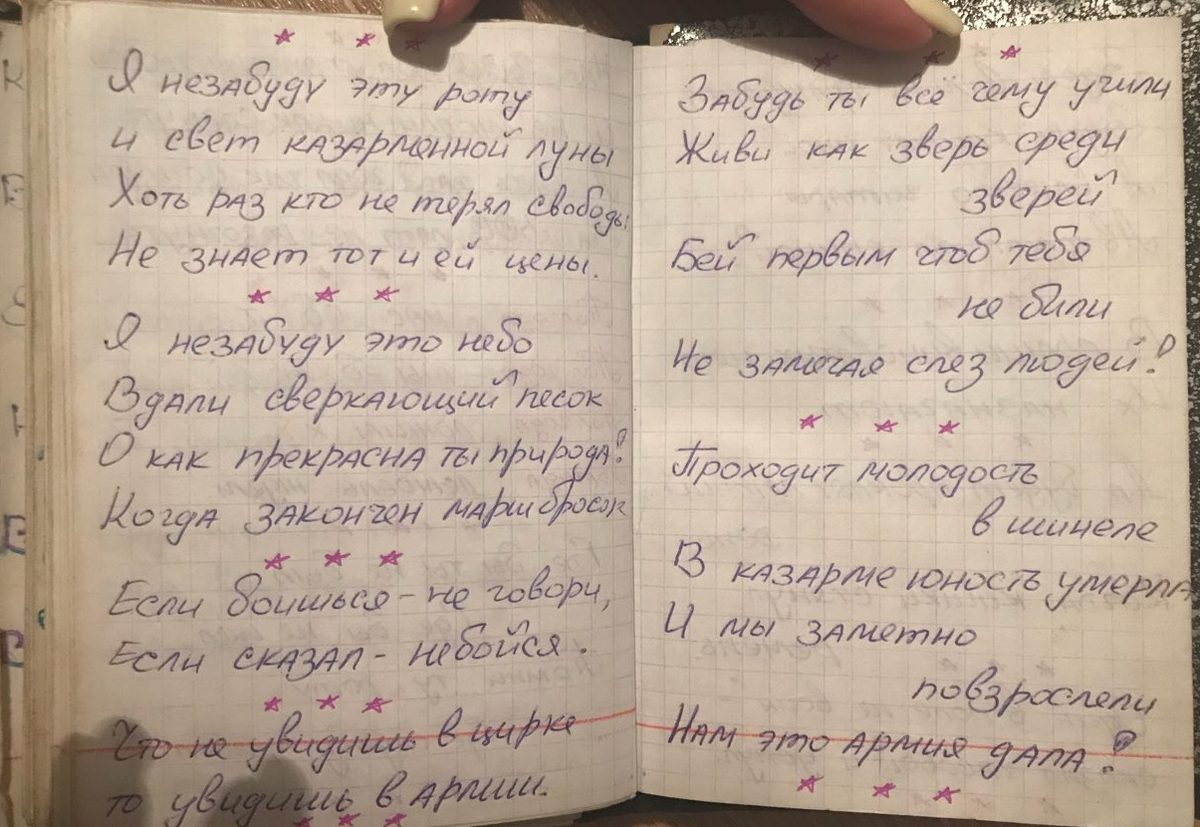 Я незабуду эту роту
и свет казарменной луны
Хоть раз кто не терял свободы
Не знает тот и ей цены.
Я незабуду это небо
Вдали сверкающий песок
О как прекрасна ты природа!
Когда закончен маршбросок
Если боишься - не говори,
Если сказал - небойся.
Что не увидишь в цирке
то увидишь в армии.
Забудь ты всё чему учили
Живи как зверь среди
зверей
Бей первым чтоб тебя
не били
Не замечая слез людей!
Проходит молодость
в шинеле
В казарме юность умерла
И мы заметно
повзрослели
Нам это армия дала!